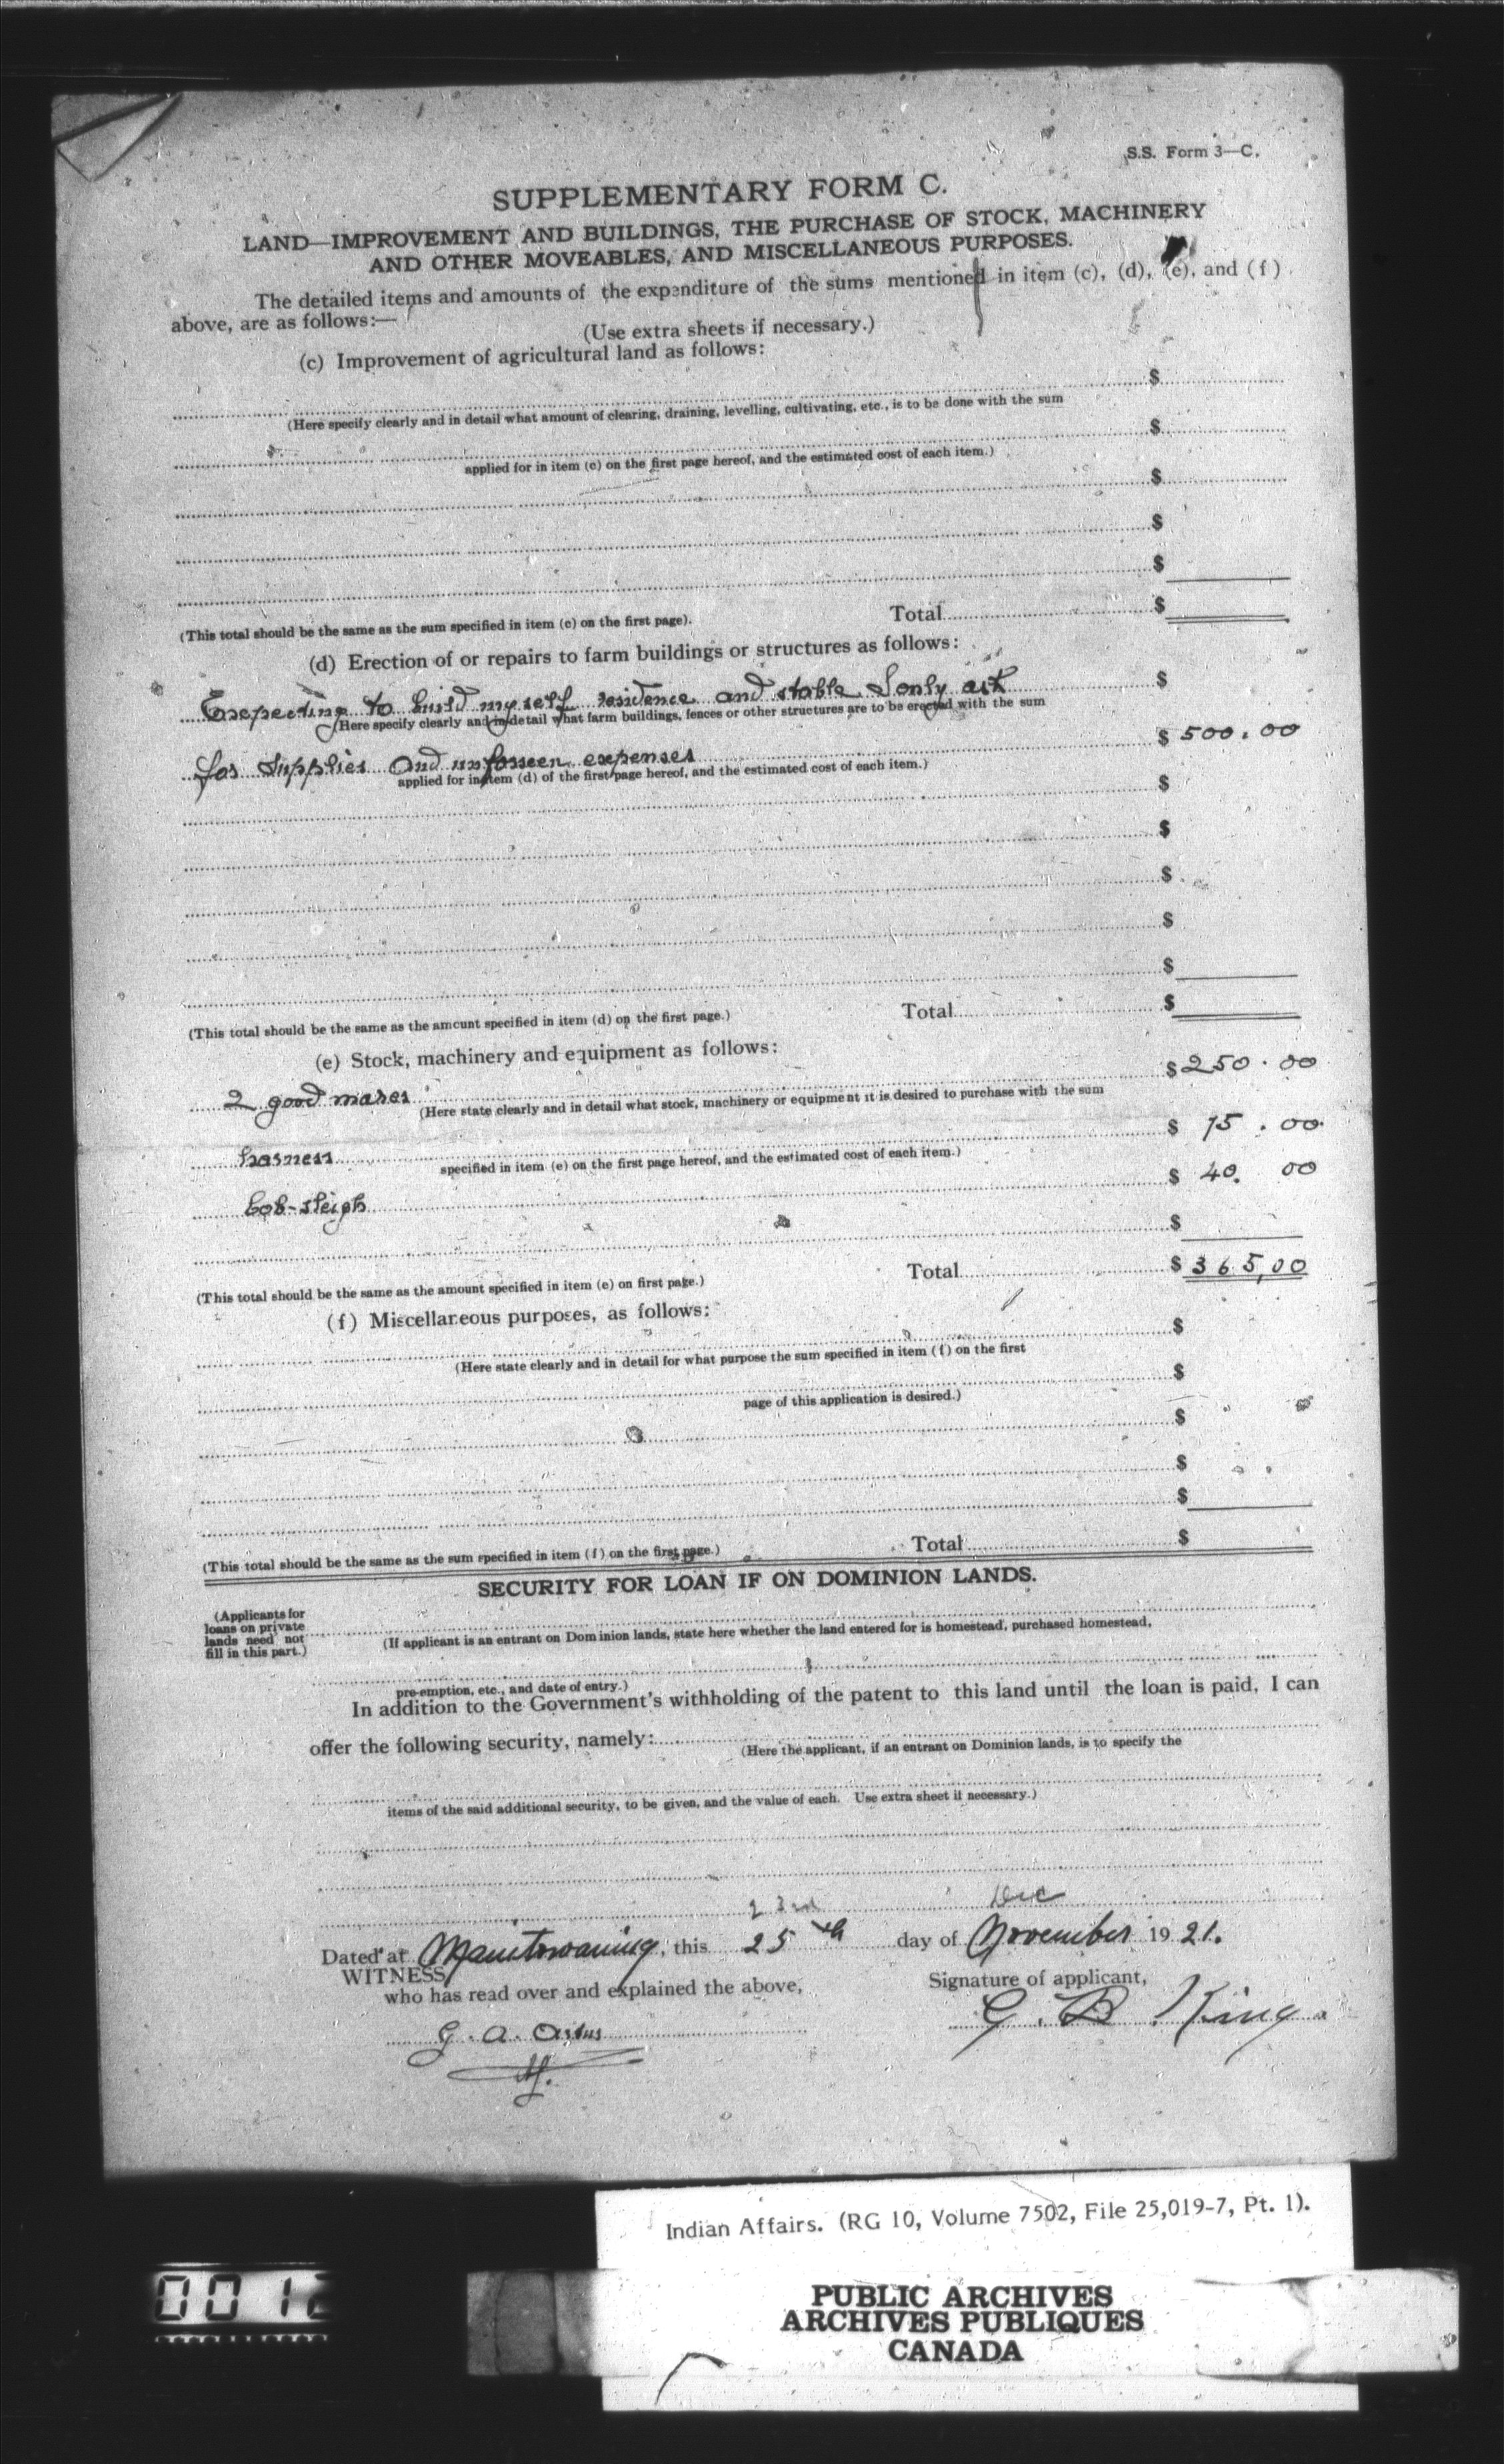 S.S. Form 3—C.
SUPPLEMENTARY FORM C.
LAND—IMPROVEMENT AND BUILDINGS, THE PURCHASE OF STOCK, MACHINERY
AND OTHER MOVEABLES, AND MISCELLANEOUS PURPOSES.
The detailed items and amounts of the expenditure of the sums mentioned in item (c), (d), (e), and (f)
above, are as follows:—
(Use extra sheets if necessary.)
(c) Improvement of agricultural land as follows:
$
(Here specify clearly and in detail what amount of clearing, draining, levelling, cultivating, etc., is to be done with the sum
$
applied for in item (c) on the first page hereof, and the estimated cost of each item.)
$
$
$
(This total should be the same as the sum specified in item (c) on the first page). Total $
(d) Erection of or repairs to farm buildings or structures as follows:
Expecting to build myself residence and stable I only ask $
(Here specify clearly and in detail what farm buildings, fences or other structures are to be erected with the sum
for supplies and unforseen expenses $ 500.00
applied for in item (d) of the first page hereof, and the estimated cost of each item.)
$
$
$
$
$
(This total should be the same as the amount specified in item (d) on the first page.) Total $
(e) Stock, machinery and equipment as follows:
2 good mares $ 250.00
(Here state clearly and in detail what stock, machinery or equipment it is desired to purchase with the sum
harness $ 75.00
specified in item (e) on the first page hereof, and the estimated cost of each item.)
bob-sleigh $ 40.00
$
(This total should be the same as the amount specified in item (e) on first page.) Total $ 365,00
(f) Miscellaneous purposes, as follows:
$
(Here state clearly and in detail for what purpose the sum specified in item (f) on the first
$
page of this application is desired.)
$
$
$
(This total should be the same as the sum specified in item (f) on the first page.) Total $
SECURITY FOR LOAN IF ON DOMINION LANDS.
(Applicants for
loans on private
lands need not
fill in this part.)
(If applicant is an entrant on Dominion lands, state here whether the land entered for is homestead, purchased homestead,
pre-emption, etc., and date of entry.)
In addition to the Government's withholding of the patent to this land until the loan is paid, I can
offer the following security, namely:
(Here the applicant, if an entrant on Dominion lands, is to specify the
items of the said additional security, to be given, and the value of each. Use extra sheet if necessary.)
23rd Dec
Dated at Manitowaning, this 25th day of November 1921.
WITNESS, Signature of applicant,
who has read over and explained the above,
G. B. King
G. A.
Indian Affairs. (RG 10, Volume 7502, File 25,019-7, Pt. 1).
PUBLIC ARCHIVES
ARCHIVES PUBLIQUES
CANADA
0012